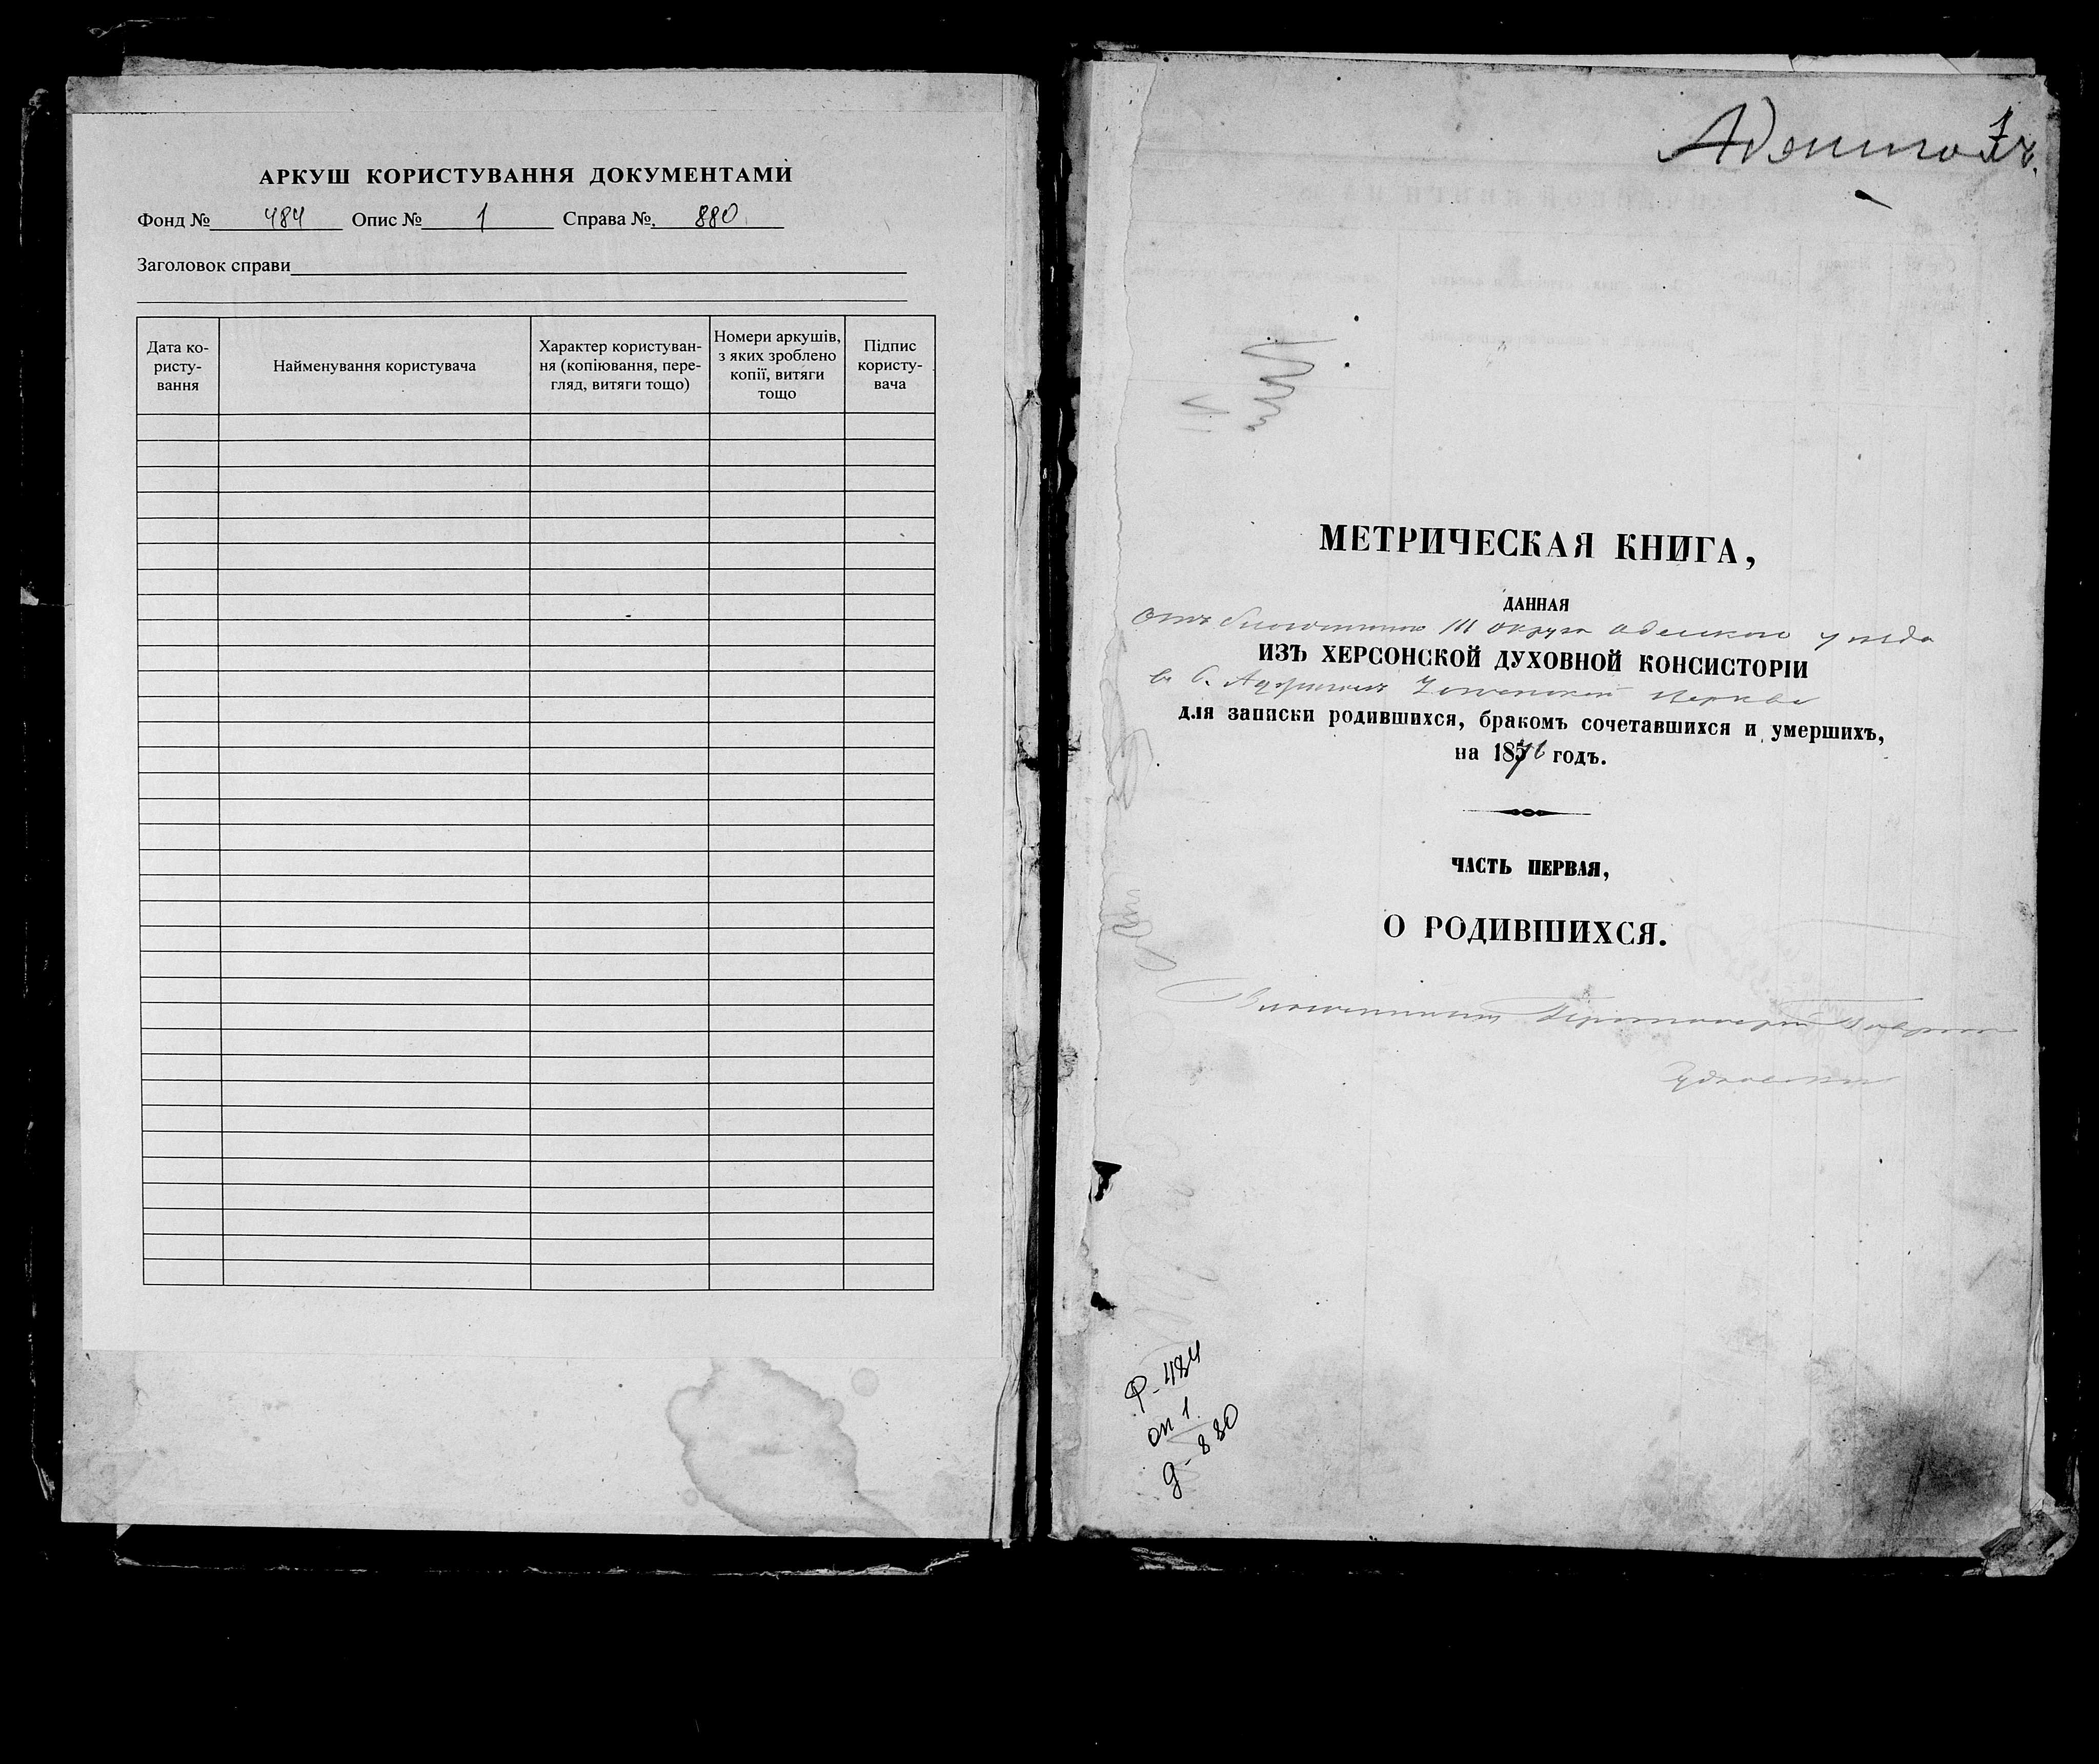 АРКУШ КОРИСТУВАННЯ ДОКУМЕНТАМИ
Фонд № 484 Опис № 1 Справа №. 880
Заголовок справи
Дата ко-
ристу-
вання
Найменування користувача
Характер користуван-
ня (копіювання, пере-
гляд, витяги тощо)
Номери аркушів,
з яких зроблено
копії, витяги
тощо
Підпис
користу-
вача
МЕТРИЧЕСКАЯ КНИГА,
ДАННАЯ
Отъ Благочиннаго III округа Одесскаго уезда
ИЗЪ ХЕРСОНСКОЙ ДУХОВНОЙ КОНСИСТОРІИ
въ С. церкви
для записки родившихся, бракомъ сочетавшихся и умершихъ,
на 1876 годъ.
ЧАСТЬ ПЕРВАЯ,
О РОДИВШИХСЯ.
Благочинный Протоіерей
Ф-484
оп 1
д-880